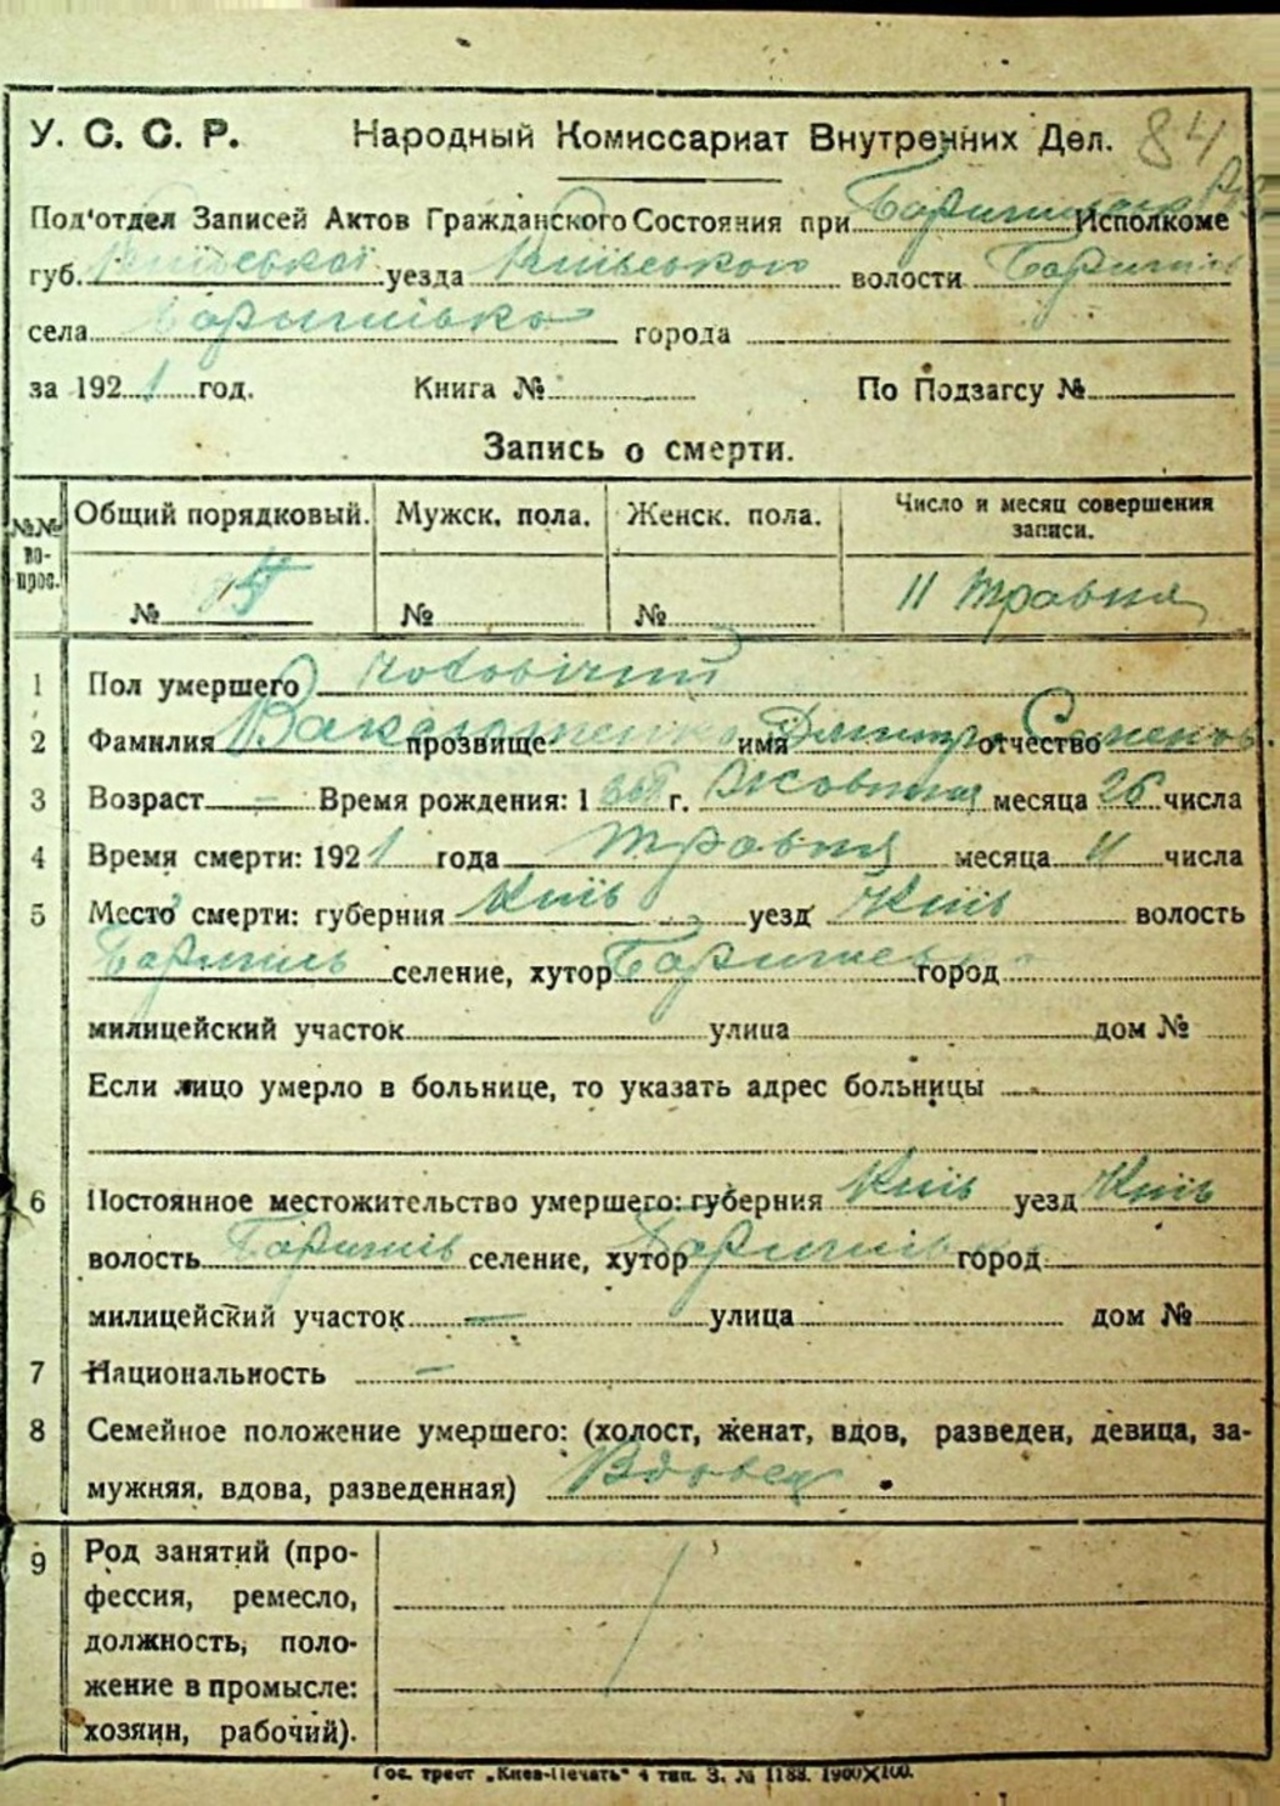 84
У. С. С. Р. Народный Комиссариат Внутренних Дел.
Под'отдел Записей Актов Гражданского Состояния при Исполкоме
губ. Київської уезда Київського волости
села города
за 1921 год. Книга № По Подзагсу №
Запись о смерти.
№№ вопрос. Общий порядковый. Мужск. пола. Женск. пола. Число и месяц совершения записи.
№ № № 11 травня
1 Пол умершего чоловічий
2 Фамилия прозвище имя Дмитро отчество
3 Возраст — Время рождения: 1 г. Жовтня месяца 26 числа
4 Время смерти: 1921 года травня месяца 11 числа
5 Место смерти: губерния Київ уезд Київ волость
селение, хутор город
милицейский участок улица дом №
Если лицо умерло в больнице, то указать адрес больницы
6 Постоянное местожительство умершего: губерния Київ уезд Київ
волость селение, хутор город
милицейский участок — улица дом №
7 Национальность —
8 Семейное положение умершего: (холост, женат, вдов, разведен, девица, за-
мужняя, вдова, разведенная) Вдовец
9 Род занятий (про-
фессия, ремесло,
должность, поло-
жение в промысле:
хозяин, рабочий).
Гос. трест „Киев-Печать" 4 тип. З. № 1188. 1900×100.